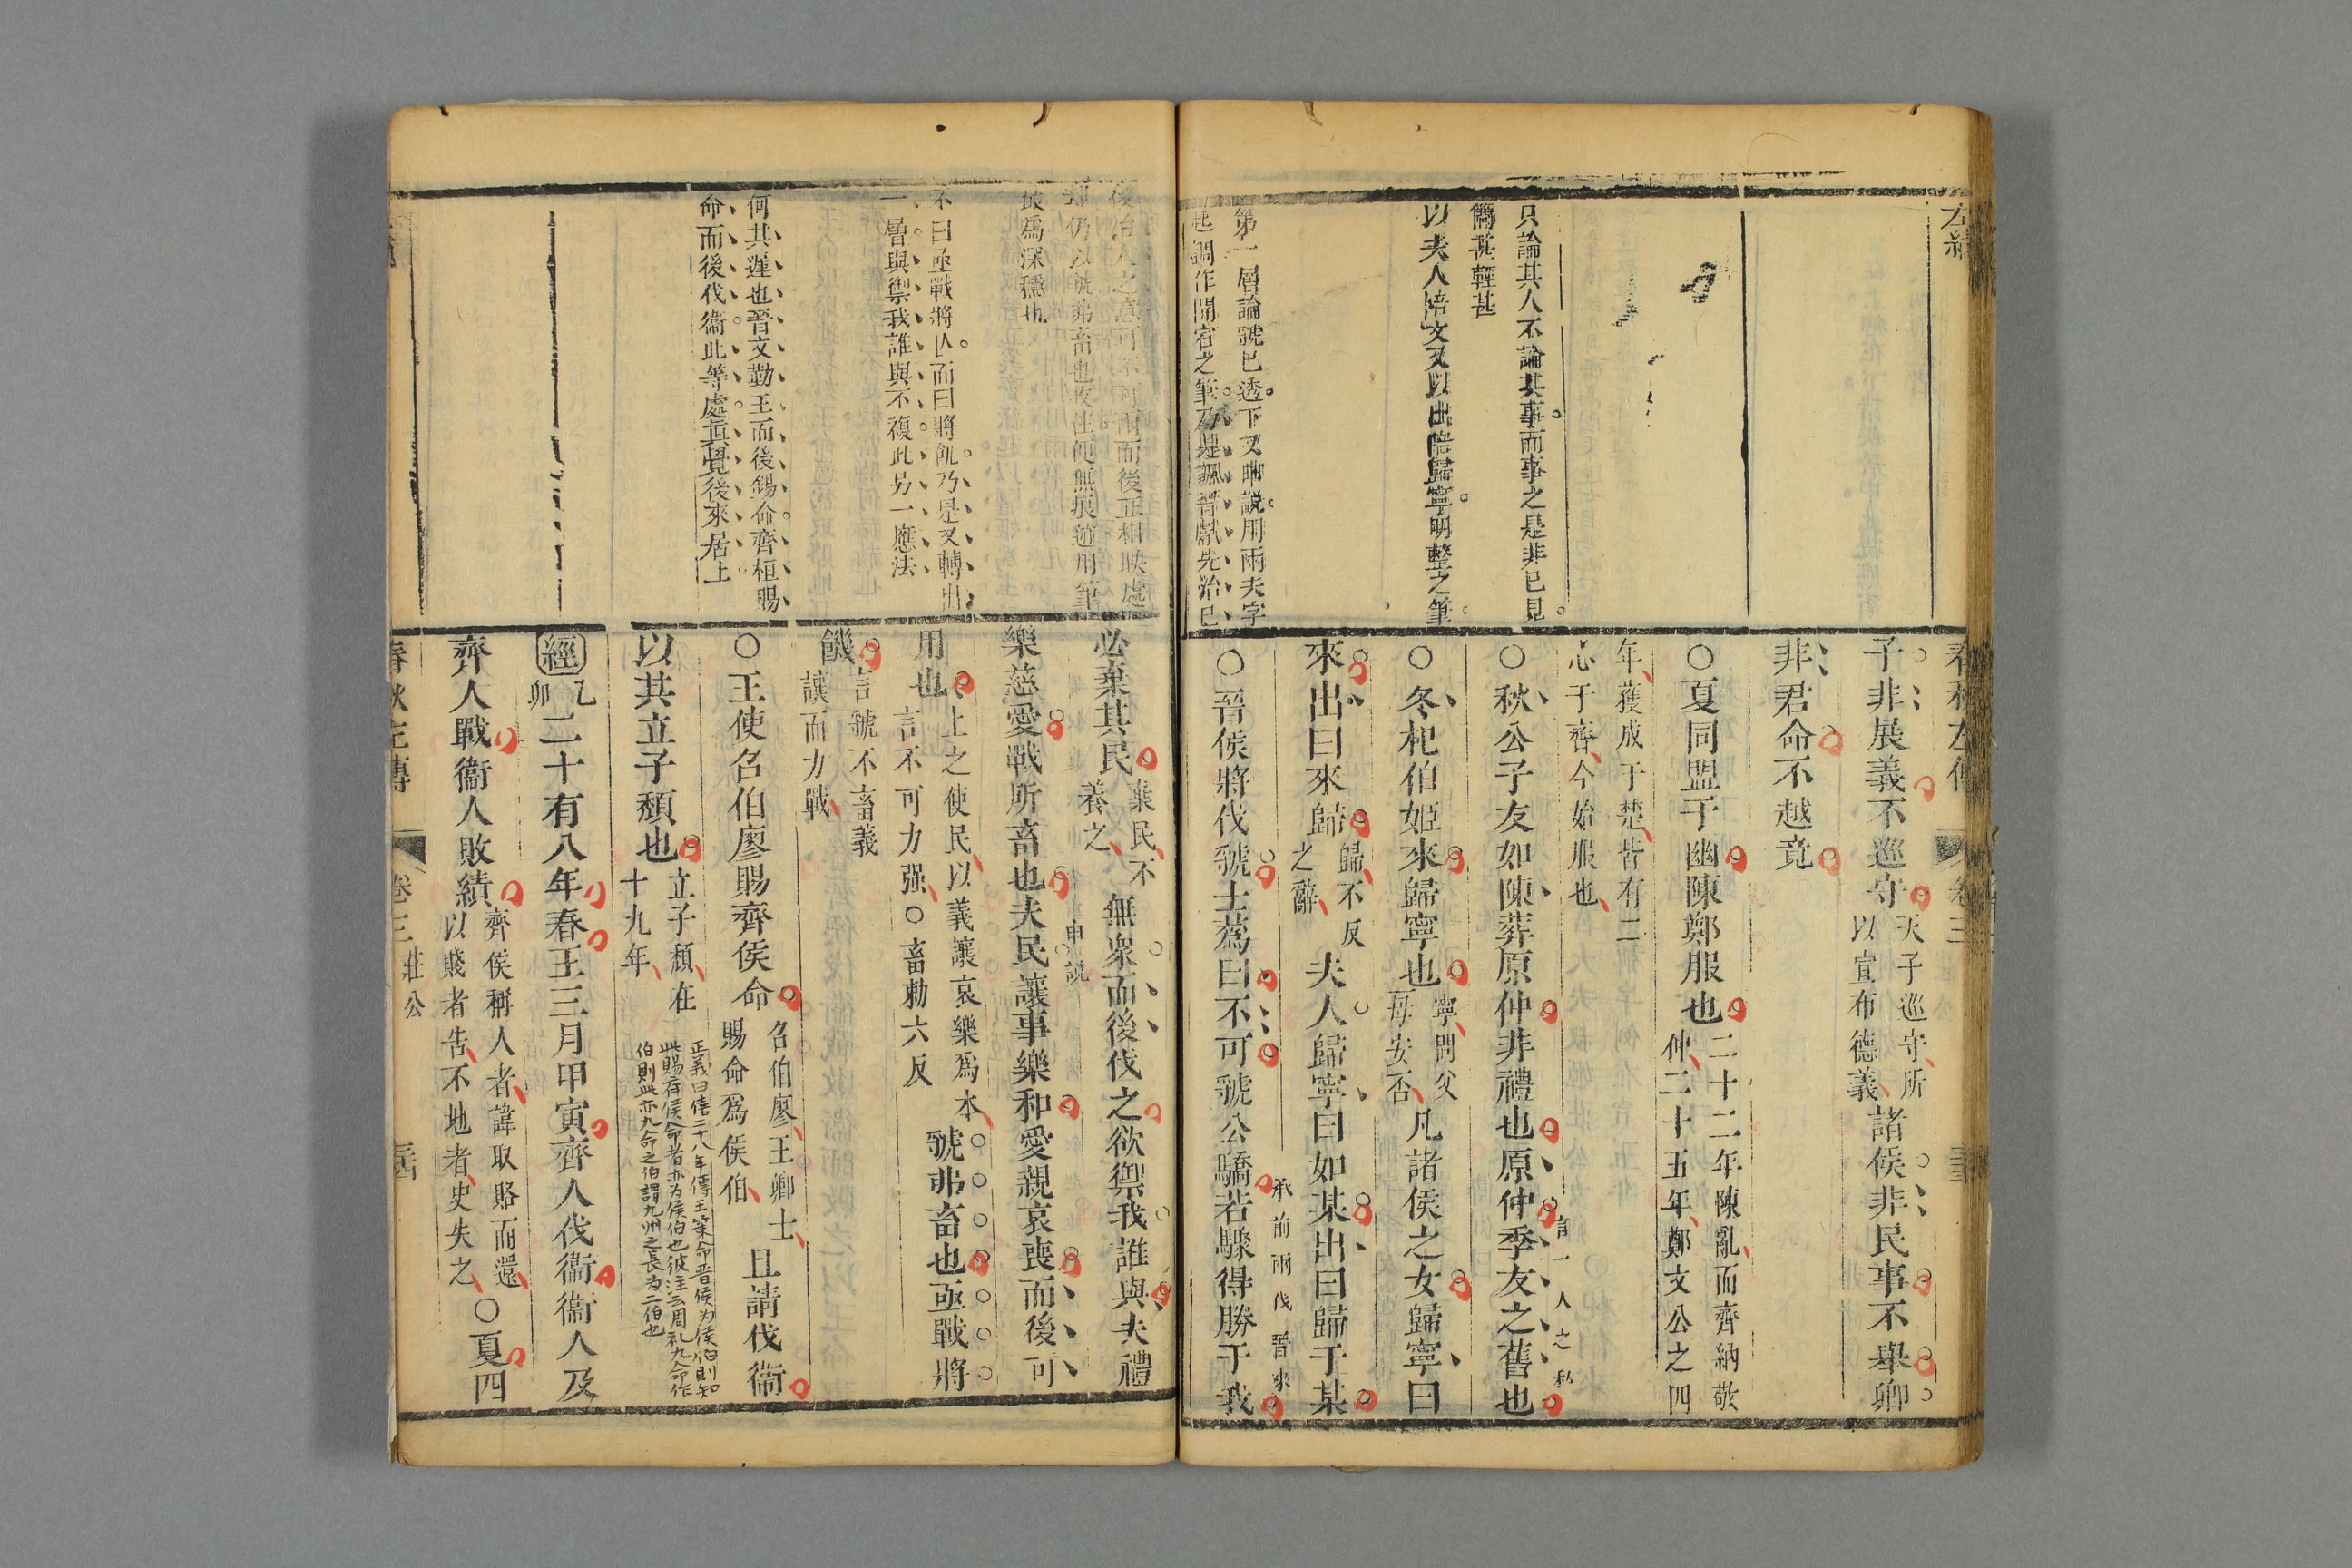 春秋左傳
卷三
子非展義不巡守
天子巡守所
以宣布德義
諸侯非民事不舉卿
非君命不越竟
○夏同盟于幽陳鄭服也
二十二年陳亂而齊納敬
仲二十五年鄭文公之四
年獲成于楚皆有二
心于齊今始服也
○秋公子友如陳葬原仲非禮也原仲季友之舊也
言一人之私
○冬杞伯姬來歸寧也
寧問父
母安否
凡諸侯之女歸寧曰
來出曰來歸
歸不反
之辭
夫人歸寧曰如某出曰歸于某
○晉侯將伐虢士蔿曰不可虢公驕若驟得勝于我
承前兩伐晉來
只論其人不論其事而事之是非已見
簡甚輕甚
以夫人陪文又以出陪歸寧明整之筆
第一層論虢已透下文申說用兩夫字
起調作開宕之筆乃是諷晉獻先治己
後治人之意可不可兩而後正相映處
却仍以虢弗畜也收住便無痕迹用筆
最爲深穩也
不曰亟戰將人而曰將飢乃是又轉出
一層與禦我誰與不複此另一應法
何其遲也晉文勤王而後錫命齊桓賜
命而後伐衞此等處眞覺後來居上
必棄其民
棄民不
養之
無衆而後伐之欲禦我誰與夫禮
申說
樂慈愛戰所畜也夫民讓事樂和愛親哀喪而後可
用也
上之使民以義讓哀樂爲本
言不可力强○畜勑六反
虢弗畜也亟戰將
饑
言虢不畜義
讓而力戰
○王使召伯廖賜齊侯命
召伯廖王卿士
賜命爲侯伯
且請伐衞
以其立子頹也
立子頹在
十九年
正義曰僖二十八年傳王策命晋侯为侯伯則知
此賜齊侯命者亦为侯伯也彼注云周礼九命作
伯則此亦九命之伯謂九州之長为二伯也
經
乙
卯
二十有八年春王三月甲寅齊人伐衞衞人及
齊人戰衞人敗績
齊侯稱人者諱取賂而還
以賤者告不地者史失之
○夏四
春秋左傳
卷三
莊公